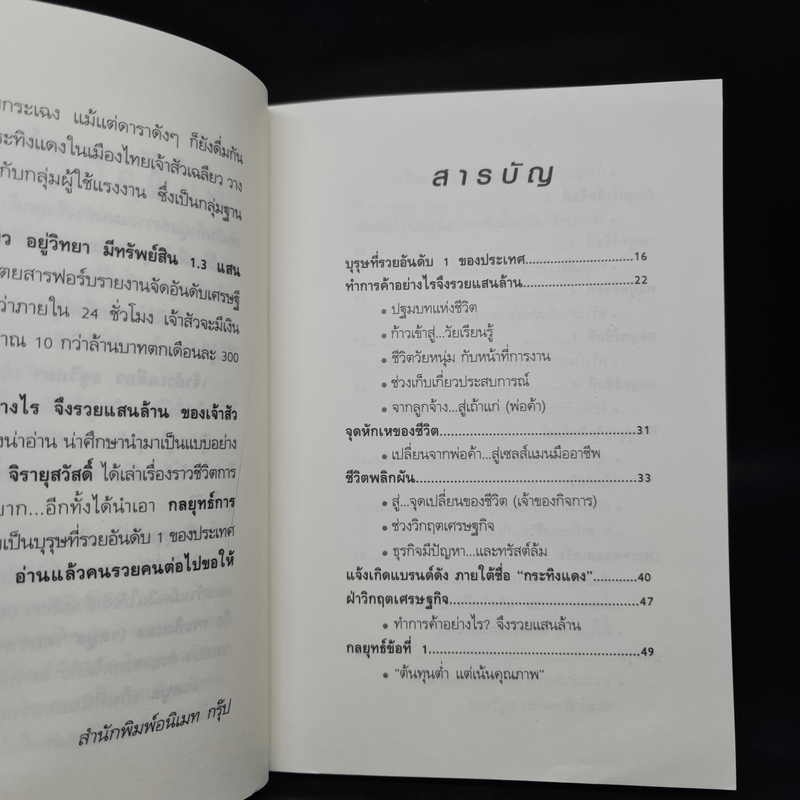 กระเฉง แม้แต่ดาราดังๆ ก็ยังดื่มกัน
ะทิงแดงในเมืองไทยเจ้าสัวเฉลียว วาง
กับกลุ่มผู้ใช้แรงงาน ซึ่งเป็นกลุ่มฐาน
อยู่วิทยา มีทรัพย์สิน 1.3 แสน
ตยสารฟอร์บรายงานจัดอันดับเศรษฐี
ว่าภายใน 24 ชั่วโมง เจ้าสัวจะมีเงิน
าณ 10 กว่าล้านบาทตกเดือนละ 300
างไร จึงรวยแสนล้าน ของเจ้าสัว
งน่าอ่าน น่าศึกษานำมาเป็นแบบอย่าง
จิรายุสวัสดิ์ ได้เล่าเรื่องราวชีวิตการ
บาก...อีกทั้งได้นำเอา กลยุทธ์การ
เป็นบุรุษที่รวยอันดับ 1 ของประเทศ
อ่านแล้วคนรวยคนต่อไปขอให้
สำนักพิมพ์อนิเมท กรุ๊ป
สารบัญ
บุรุษที่รวยอันดับ 1 ของประเทศ.........................16
ทำการค้าอย่างไรจึงรวยแสนล้าน.........................22
• ปฐมบทแห่งชีวิต
• ก้าวเข้าสู่...วัยเรียนรู้
• ชีวิตวัยหนุ่ม กับหน้าที่การงาน
• ช่วงเก็บเกี่ยวประสบการณ์
• จากลูกจ้าง...สู่เถ้าแก่ (พ่อค้า)
จุดหักเหของชีวิต.........................31
• เปลี่ยนจากพ่อค้า...สู่เซลส์แมนมืออาชีพ
ชีวิตพลิกผัน.........................33
• สู่...จุดเปลี่ยนของชีวิต (เจ้าของกิจการ)
• ช่วงวิกฤตเศรษฐกิจ
• ธุรกิจมีปัญหา...และทรัสต์ล้ม
แจ้งเกิดแบรนด์ดัง ภายใต้ชื่อ "กระทิงแดง"...........40
ฝ่าวิกฤตเศรษฐกิจ.........................47
• ทำการค้าอย่างไร? จึงรวยแสนล้าน
กลยุทธ์ข้อที่ 1.........................49
• "ต้นทุนต่ำ แต่เน้นคุณภาพ"